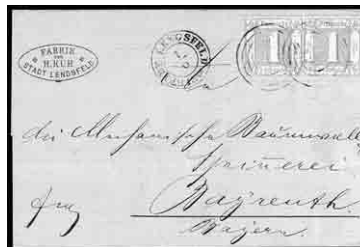 FABRIK
VON
H. KUR
STADT LENGSFELD
LENGSFELD
1 1
die Mechanische Baumwoll
Spinnerei
Bayreuth.
Bayern.